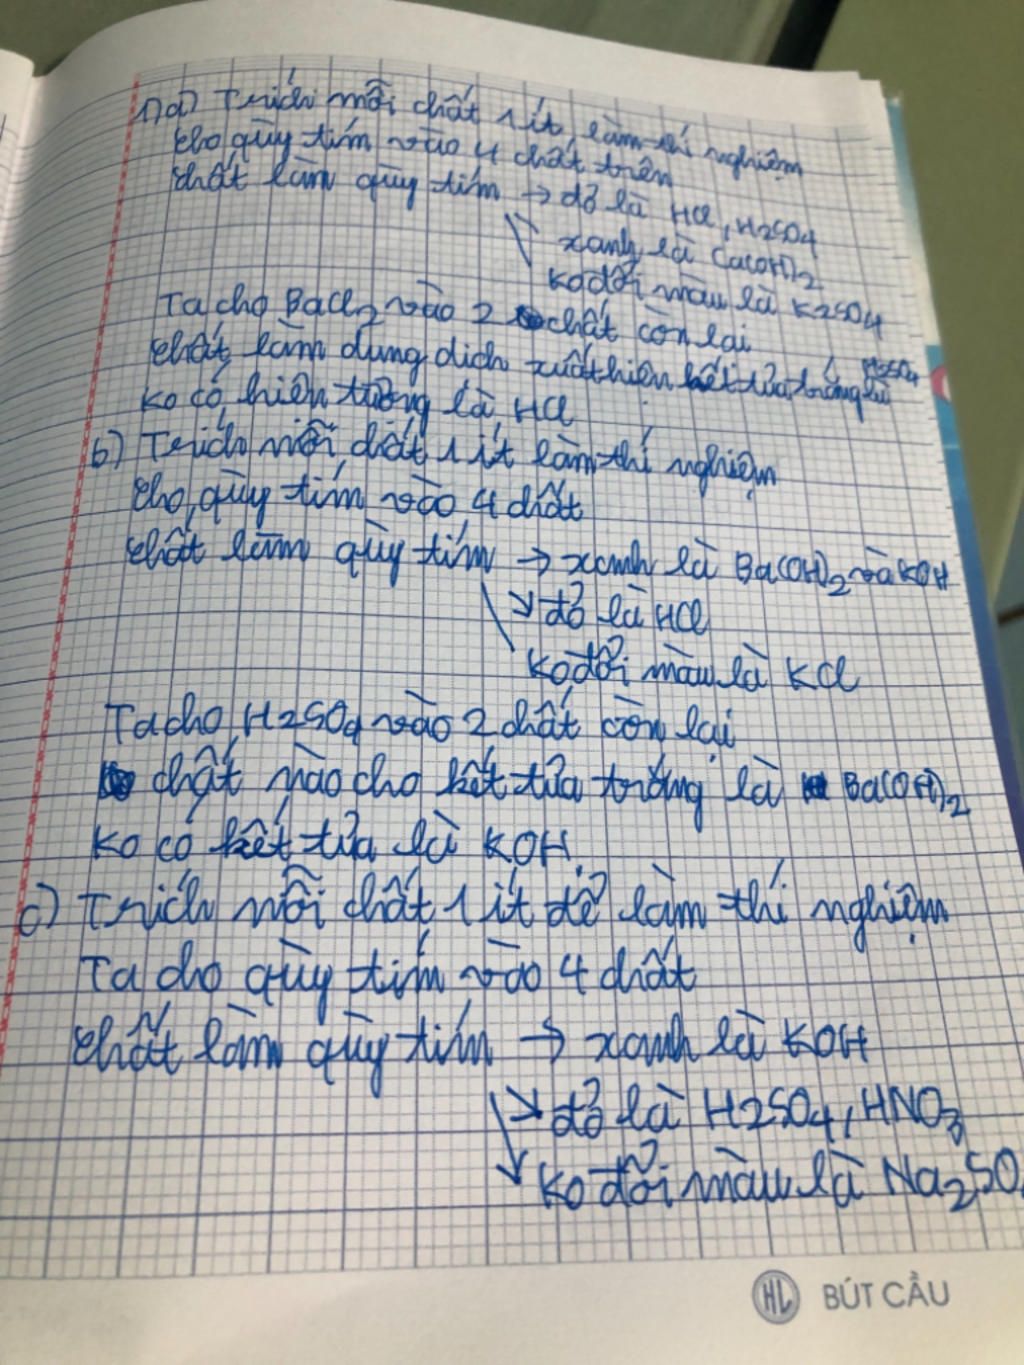 1)a) Trích mỗi chất 1 ít, làm thí nghiệm
cho quỳ tím vào 4 chất trên
chất làm quỳ tím → đỏ là HCl, H2SO4
xanh là Ca(OH)2
ko đổi màu là K2SO4
Ta cho BaCl2 vào 2 chất còn lại
chất làm dung dịch xuất hiện kết tủa trắng là H2SO4
ko có hiện tượng là HCl
b) Trích mỗi chất 1 ít làm thí nghiệm
cho quỳ tím vào 4 chất
chất làm quỳ tím → xanh là Ba(OH)2 và KOH
↘ đỏ là HCl
ko đổi màu là KCl
Ta cho H2SO4 vào 2 chất còn lại
chất nào cho kết tủa trắng là Ba(OH)2
ko có kết tủa là KOH
c) Trích mỗi chất 1 ít để làm thí nghiệm
Ta cho quỳ tím vào 4 chất
chất làm quỳ tím → xanh là KOH
↘ đỏ là H2SO4, HNO3
↘ ko đổi màu là Na2SO
HL BÚT CẦU